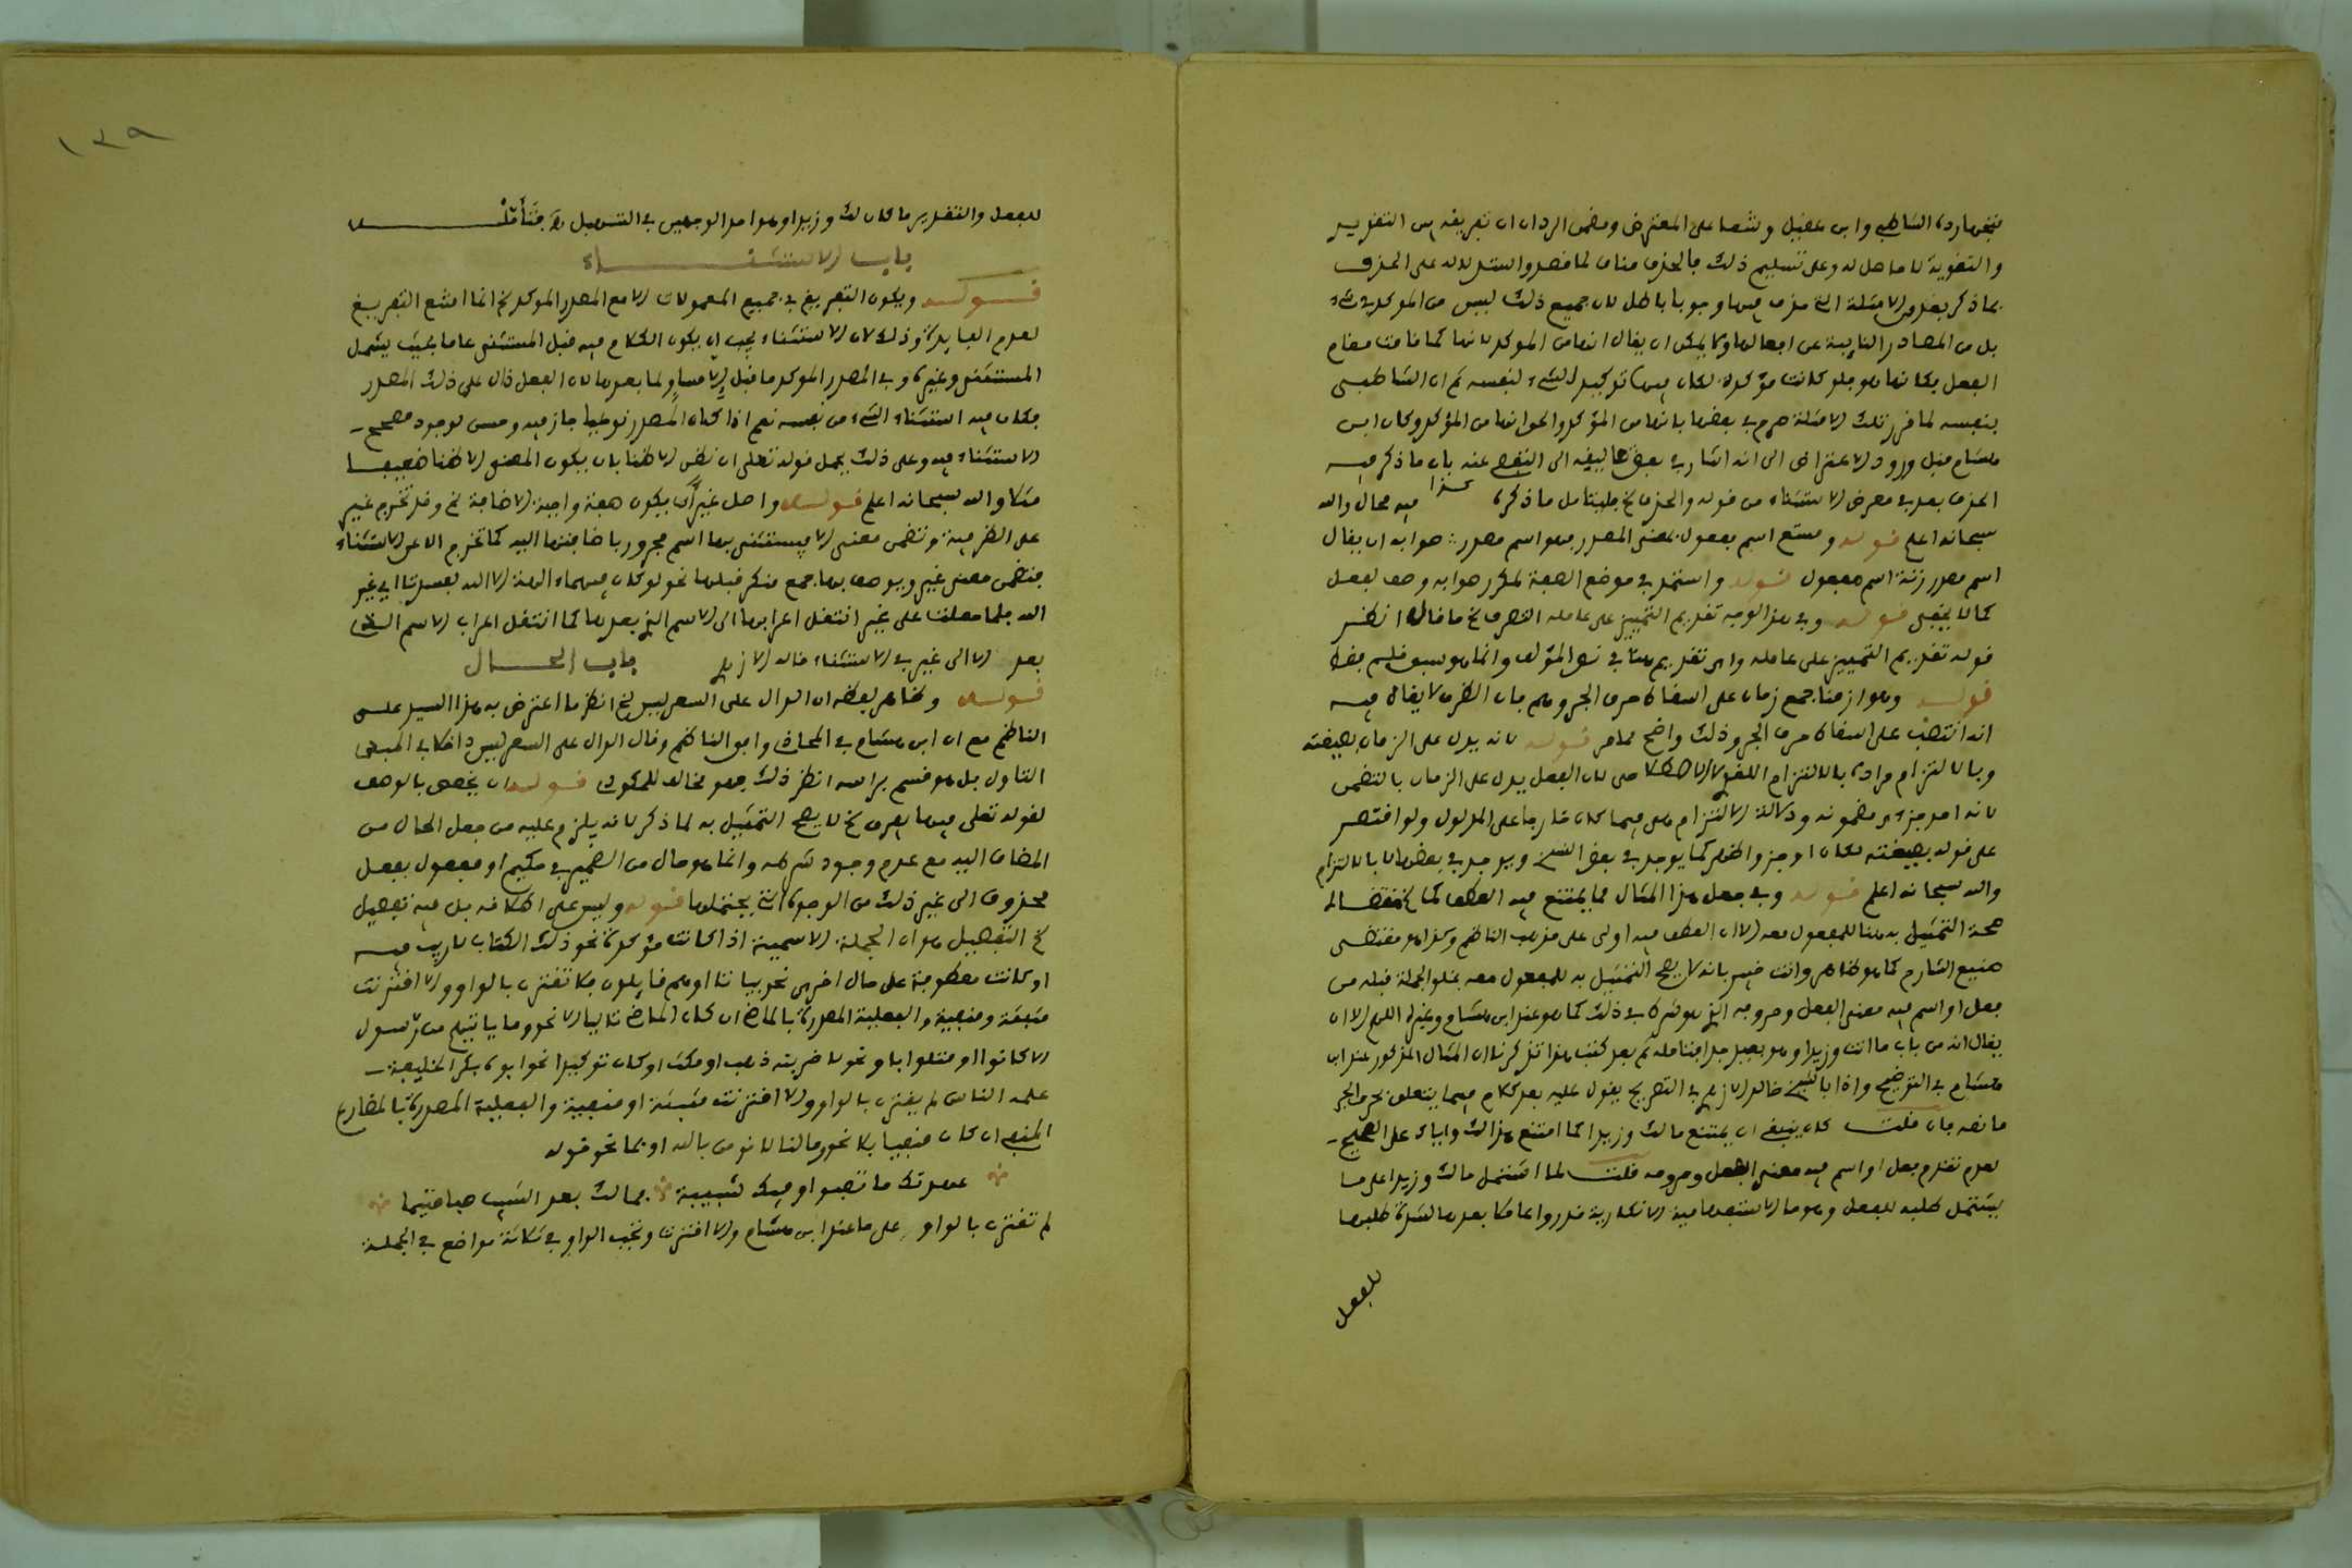 والتقوية لا حاصل له وعلى تسليم ذلك فالحذف مناف لما قصد واستدلاله على الحذف
بل من المصادر النايبة عن افعالها ولا يمكن ان يقال انها من الموكد لانها لما قامت مقام
الفعل فكانها هو فلو كانت مؤكدة لكان فيها توكيد الشيء لنفسه ثم ان الشاطبي
بنفسه لما قرر تلك الامثلة صرح في بعضها بانها من المؤكد والحق انها من المؤكد وكان ابن
هشام قبل ورود الاعتراض الى انه اشار في بعض تاليفه الى التفصي عنه بان ما ذكر فيه
الحذف بعد في معرض الاستثناء من قوله والحذف الخ فليتامل ما ذكره هذا فيه محال والله
سبحانه اعلم قوله ومستع اسم مفعول بمعنى المصدر فهو اسم مصدر صوابه ان يقال
اسم مصدر زنة اسم مفعول قوله واستمر في موضع الصفة لمكرر صوابه وصف لفعل
كما لا يخفى قوله وفي هذا الوجه تقديم التمييز على عامله المتصرف الخ ما قاله انظر
قوله تقديم التمييز على عامله واي تقديم هنا في نص المؤلف وانما هو سبق قلم فقط
قوله وهو ازمنا جمع زمان على اسقاط حرف الجر وهم فان الظرف لا يقال فيه
انه انتصب على اسقاط حرف الجر وذلك واضح ظاهر قوله لانه يدل على الزمان بصيغته
وبالالتزام مراده بالالتزام اللغوي لا الاصطلاحي لان الفعل يدل على الزمان بالتضمن
لانه احد جزءي مضمونه ودلالة الالتزام هي فيما كان خارجا على المدلول ولو اقتصر
على قوله بصيغته لكان اوجز واظهر كما يوجد في بعض النسخ ويوجد في بعضها لا بالالتزام
والله سبحانه اعلم قوله وفي جعل هذا المثال مما يمتنع فيه العطف
صحة التمثيل به هنا للمفعول معه الا ان العطف فيه اولى على مذهب الناظم وكذا هو مقتضى
صنيع الشارح كما هو ظاهر وانت خبير بانه لا يصح التمثيل به للمفعول معه بخلو الجملة قبله من
فعل او اسم فيه معنى الفعل وحروفه الذي هو شرط في ذلك كما هو عند ابن هشام وغيره اللهم الا ان
يقال انه من باب ما انت وزيدا وهو بعيد جدا فتامله ثم بعد كتب هذا تذكرت ان المثال المذكور عند ابن
هشام في التوضيح واذا بالشيخ خالد الازهري في التصريح يقول عليه بعد كلام فيما يتعلق بحرف الجر
ما نصه فان قلت كان ينبغي ان يمتنع مالك وزيدا كما امتنع هذا لك واباك على الصحيح
لعدم تقدم فعل او اسم فيه معنى الفعل وحروفه قلت لما اشتمل مالك وزيدا على ما
يشتمل طلبه للفعل وهو ما الاستفهامية الانكارية قدروا عاملا بعدها لشدة طلبها
للفعل
١٣٩
للفعل والتقدير ما كان لك وزيدا وهو احد الوجهين في التسهيل فتأمل
باب الاستثناء
قوله ويكون التفريغ في جميع المعمولات الا مع المصدر الموكد الخ انما امتنع التفريغ
لعدم الفايدة وذلك لان الاستثناء يجب ان يكون الكلام فيه قبل المستثنى عاما بحيث يشمل
المستثنى وغيره وفي المصدر الموكد ما قبل الا مساو لما بعدها لان الفعل دال على ذلك المصدر
فكان فيه استثناء الشيء من نفسه نعم اذا كان المصدر نوعيا جاز فيه وحسن لوجود مصحح
الاستثناء فيه وعلى ذلك يحمل قوله تعلى ان نظن الا ظنا بان يكون المعنى الا ظنا ضعيفا
مثلا والله سبحانه اعلم قوله واصل غير ان يكون صفة واجبة الاضافة الخ وقد تخرج غير
على الظرفية وتضمن معنى الا فيستثنى بها اسم مجرور باضافتها اليه كما تخرج الا عن الاستثناء
فتضمن معنى غير ويوصف بها جمع منكر قبلها نحو لو كان فيهما الهة الا الله لفسدتا اي غير
الله فلما حملت على غير انتقل اعرابها الى الاسم الذي بعدها كما انتقل اعراب الاسم الذي
بعد الا الى غير في الاستثناء قاله الازهري باب الحال
قوله وظاهر لفظه ان الدال على السعر ليس الخ انظر ما اعترض به هذا السيد على
الناظم مع ان ابن هشام في المحاذي وابو الناظم وقال الدال على السعر ليس داخلا في
التاول بل هو قسم براسه انظر ذلك فهو مخالف للمكودي قوله ان يخصص بالوصف
لقوله تعلى فيها يفرق الخ لا يصح التمثيل به لما ذكر لانه يلزم عليه من جعل الحال من
المضاف اليه مع عدم وجود شرطه وانما هو حال من الضمير في حكيم او مفعول بفعل
محذوف الى غير ذلك من الوجوه التي يحتملها قوله وليس على اطلاقه بل فيه تفصيل
الخ التفصيل هو ان الجملة الاسمية اذا كانت مؤكدة نحو ذلك الكتاب لا ريب فيه
او كانت معطوفة على حال اخرى نحو بياتا او هم قايلون فلا تقترن بالواو والا اقترنت
مثبتة ومنفية والفعلية المصدرة بالماضي ان كان الماضي تاليا الا نحو وما ياتيهم من رسول
الا كانوا او متلوا باو نحو لاضربنه ذهب او مكث او كان توكيدا نحو ابوه بكر الخليفة
علمه الناس لم يقترن بالواو والا اقترنت مثبتة او منفية والفعلية المصدرة بالمضارع
المنفي ان كان منفيا بلا نحو وما لنا لا نومن بالله او بما نحو قوله
عهدتك ما تصبو وفيك شبيبة فما لك بعد الشيب صبا متيما
لم تقترن بالواو على ما عند ابن هشام والا اقترنت وتجب الواو في ثلاثة مواضع في الجملة